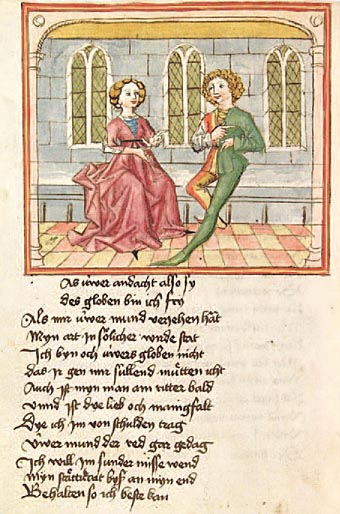 As uwer andacht also sy
des globen bin ich fry
Als mir uwer mund verjehen hat
Myn art in sölicher wirde stat
Ich byn och uwers globen nicht
das ir gen mir süllend mütten icht
Auch ist myn man am ritter bald
Unnd ist dye lieb och manigfalt
Dye ich im von schulden trag
Uwer mund der red gar gedag
Ich will im sunder misse wend
Myn stättikait byß an myn end
Behalten so ich beste kan